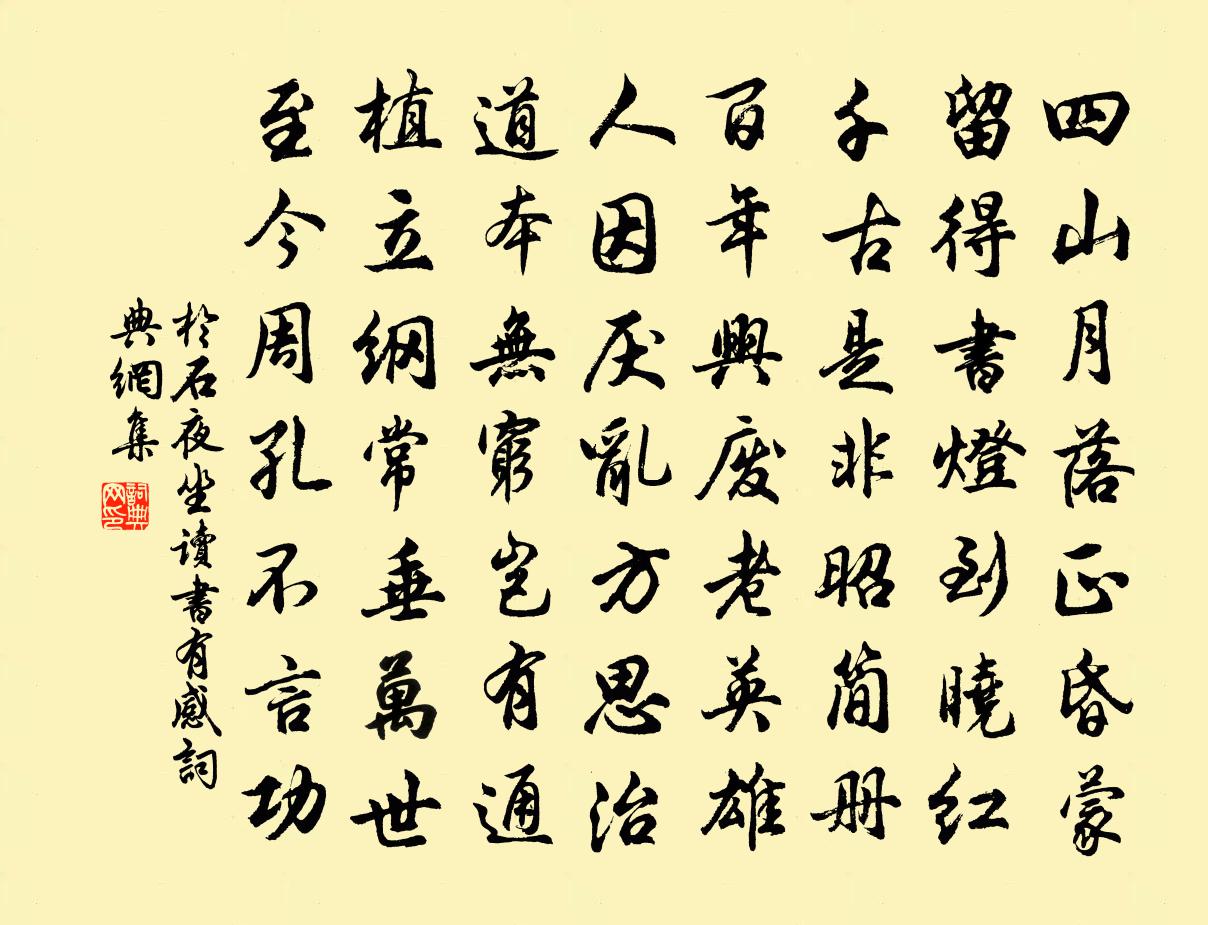 四山月落正昏蒙
留得書燈到曉紅
千古是非昭简册
百年興废老英雄
人因厌亂方思治
道本無窮岂有通
植立纲常垂萬世
至今周孔不言功
於石夜坐讀書有感詞
典網集
詞典
网印